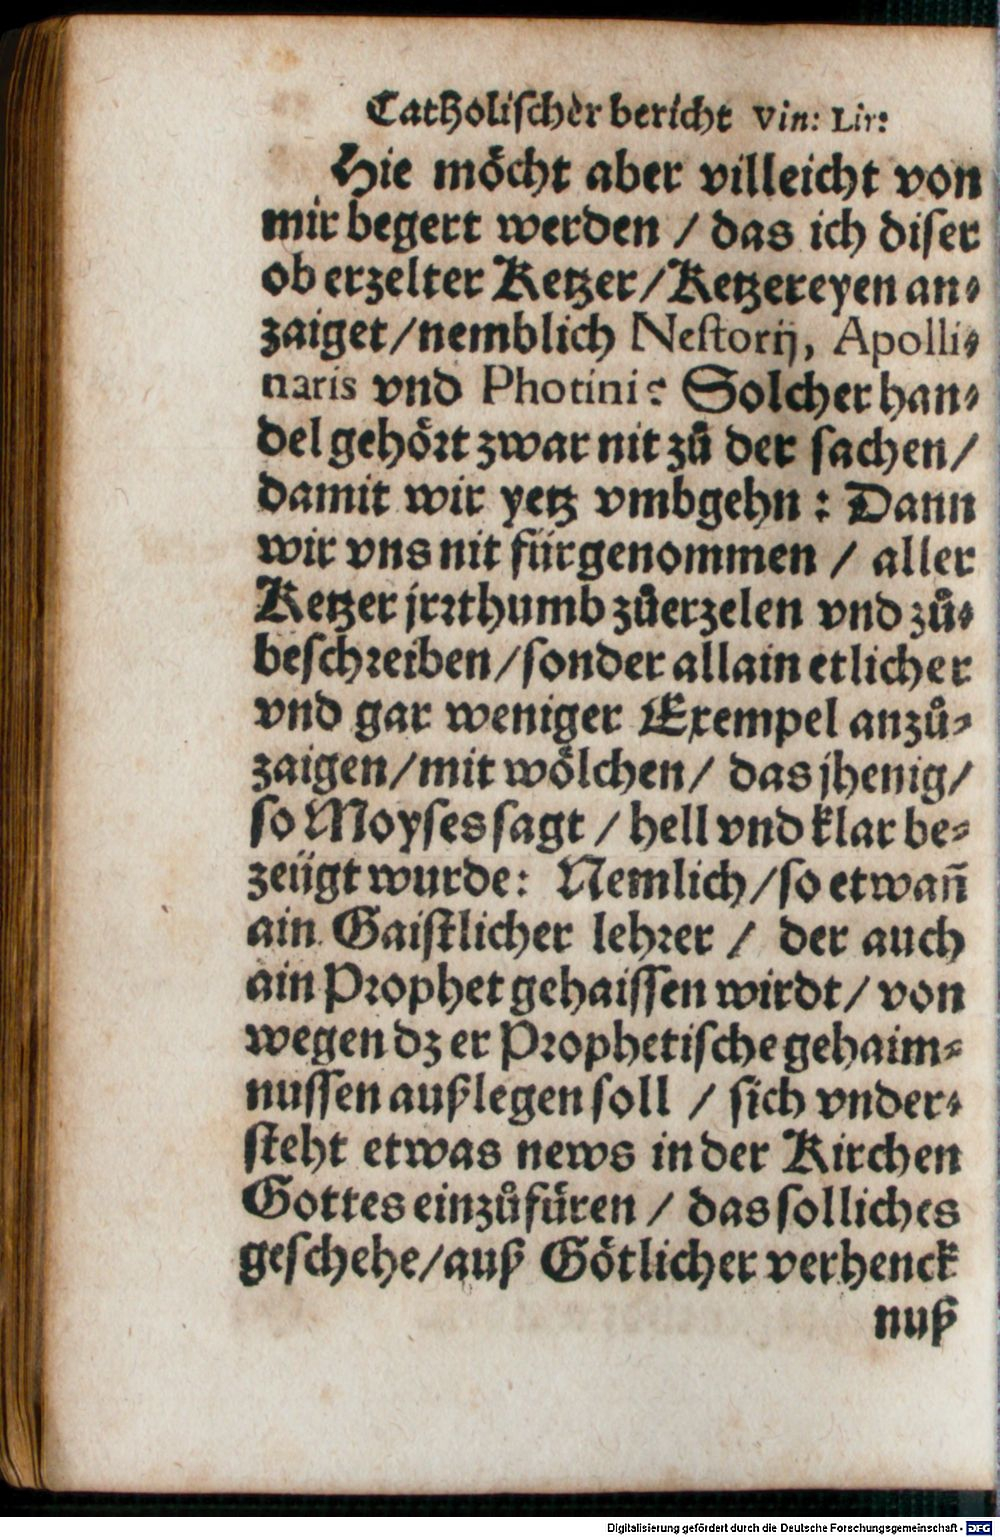 Catholischer bericht Vin: Lir:
Hie möcht aber villeicht von
mir begert werden / das ich diser
ob erzelter Ketzer/Ketzereyen an-
zaiget/nemblich Nestorij, Apolli-
naris vnd Photini? Solcher han-
del gehört zwar nit zů der sachen/
damit wir yetz vmbgehn: Dann
wir vns nit fürgenommen / aller
Ketzer jrrthumb zůerzelen vnd zů-
beschreiben/sonder allain etlicher
vnd gar weniger Exempel anzů-
zaigen/mit wölchen/ das jhenig/
so Moyses sagt / hell vnd klar be-
zeügt wurde: Nemlich/so etwañ
ain Gaistlicher lehrer / der auch
ain Prophet gehaissen wirdt/ von
wegen dz er Prophetische gehaim-
nussen außlegen soll / sich vnder-
steht etwas news in der Kirchen
Gottes einzůfüren / das solliches
geschehe/auß Götlicher verhenck
nuß
Digitalisierung gefördert durch die Deutsche Forschungsgemeinschaft - DFG